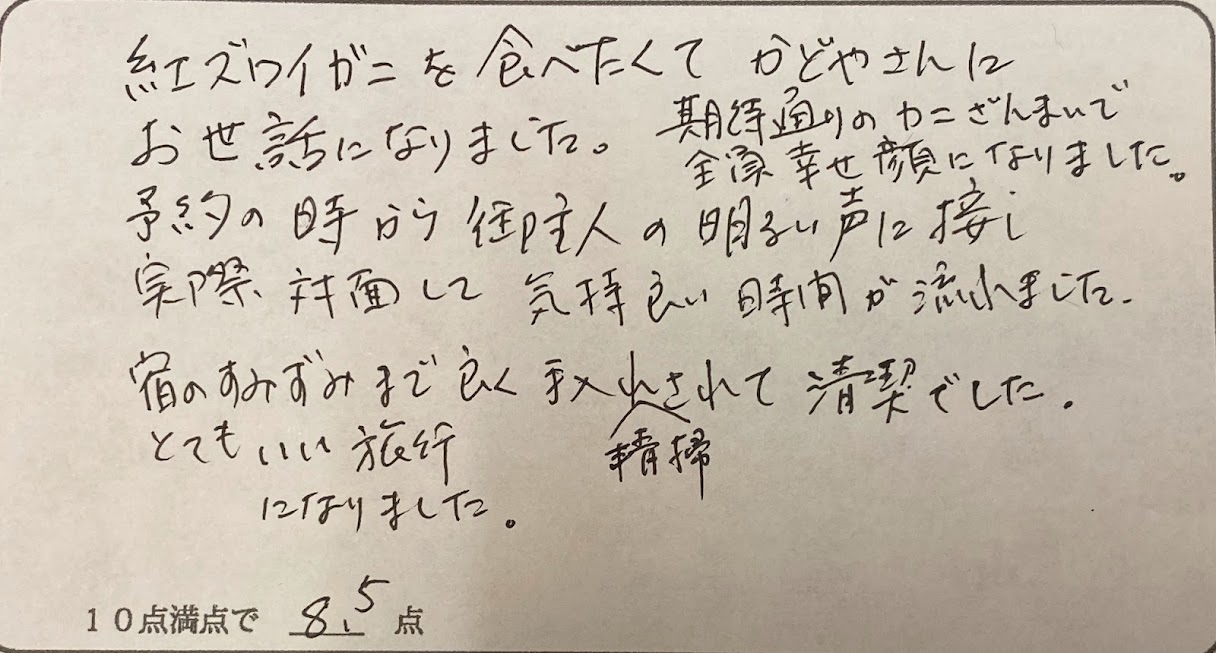 紅ズワイガニを食べたくて かどやさんに
お世話になりました。
期待通りのカニざんまいで
全員幸せ顔になりました。
予約の時から御主人の明るい声に接し
実際、対面して気持良い時間が流れました.
宿のすみずみまで良く手入れされて清潔でした.
清掃
とてもいい旅行
になりました。
10点満点で 8.5 点